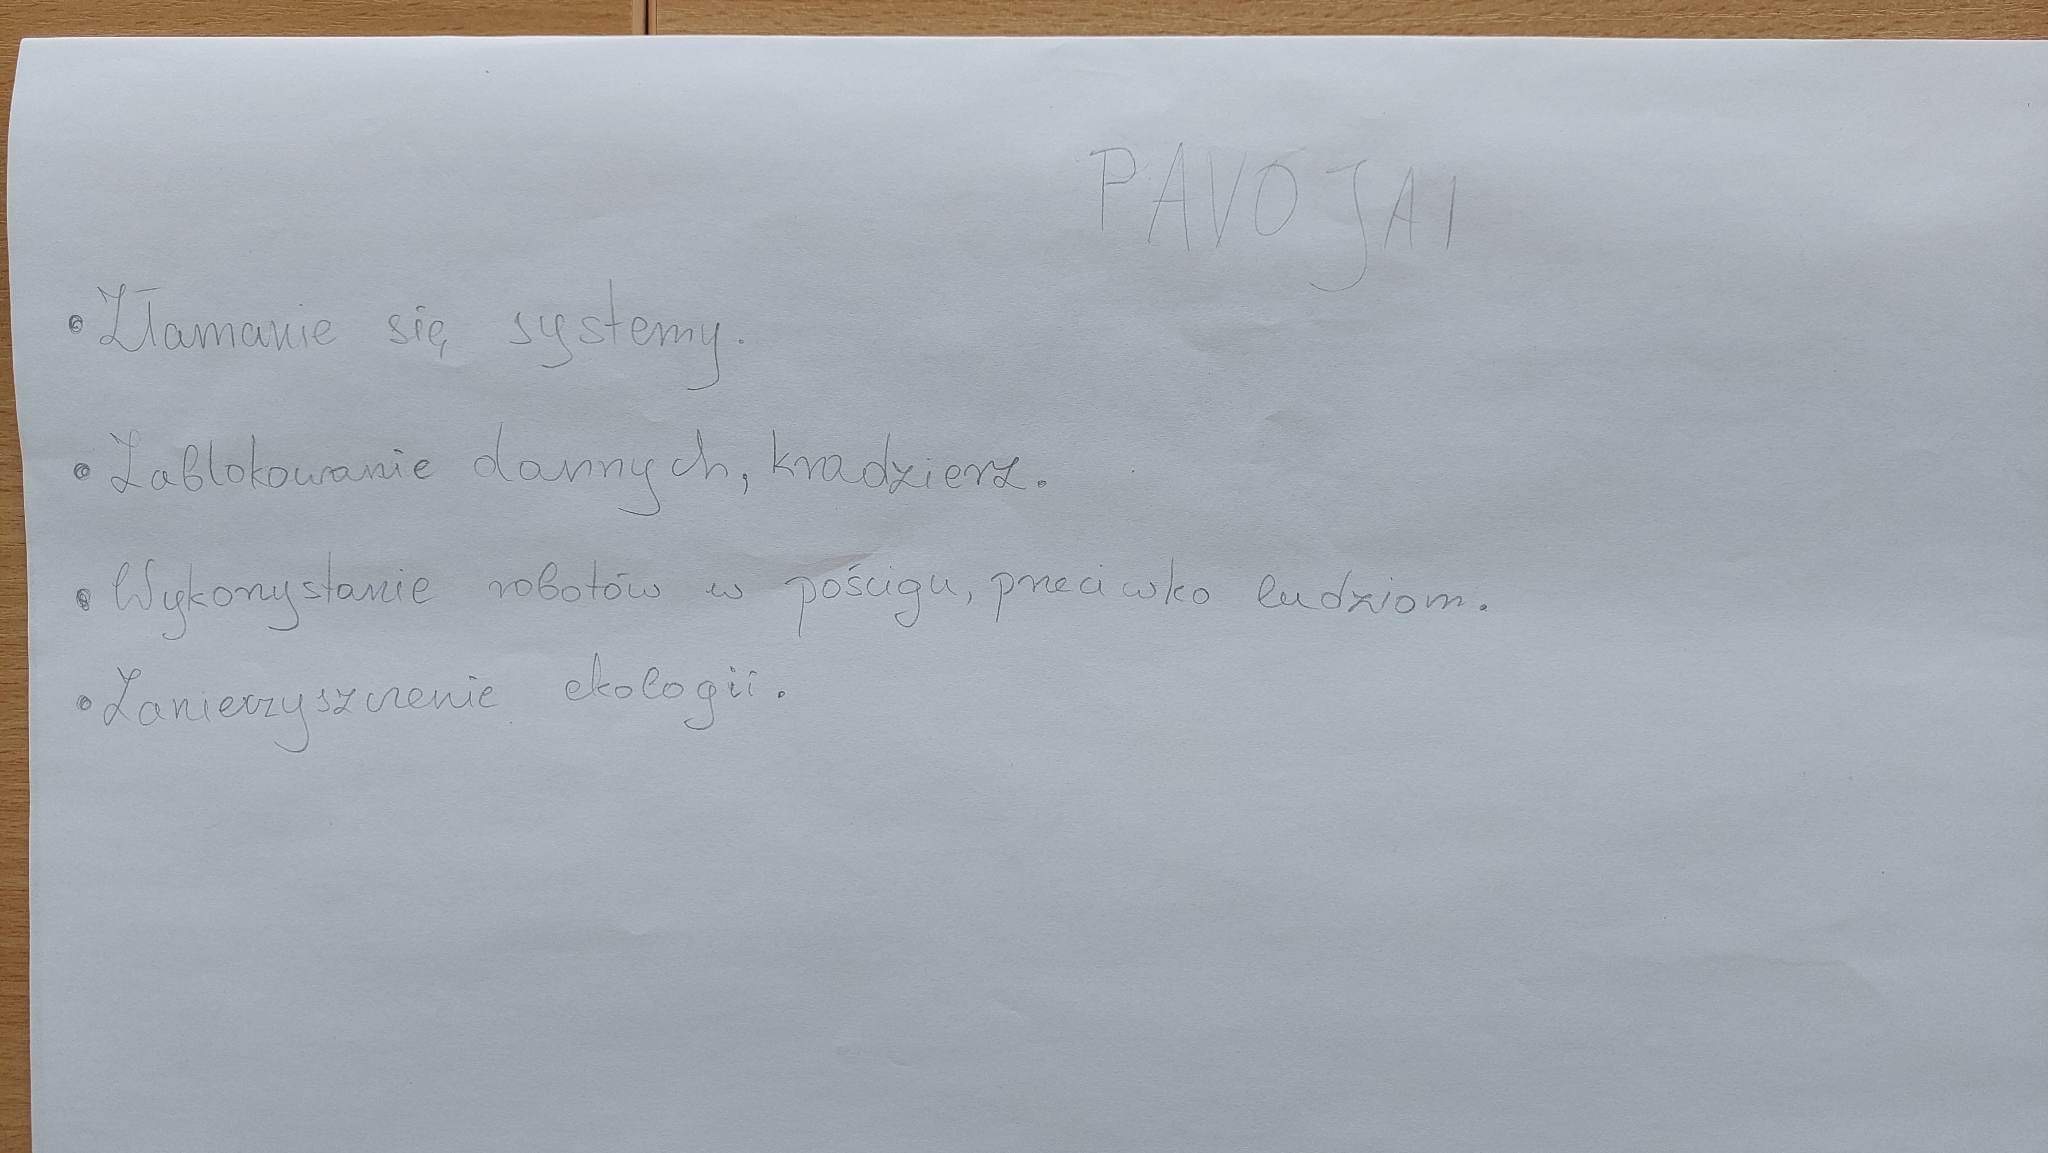 PAVOJAI
• Złamanie się systemy.
• Zablokowanie dannych, kradzierz.
• Wykorzystanie robotów w pościgu, przeciwko ludziom.
• Zanierzyszczenie ekologii.